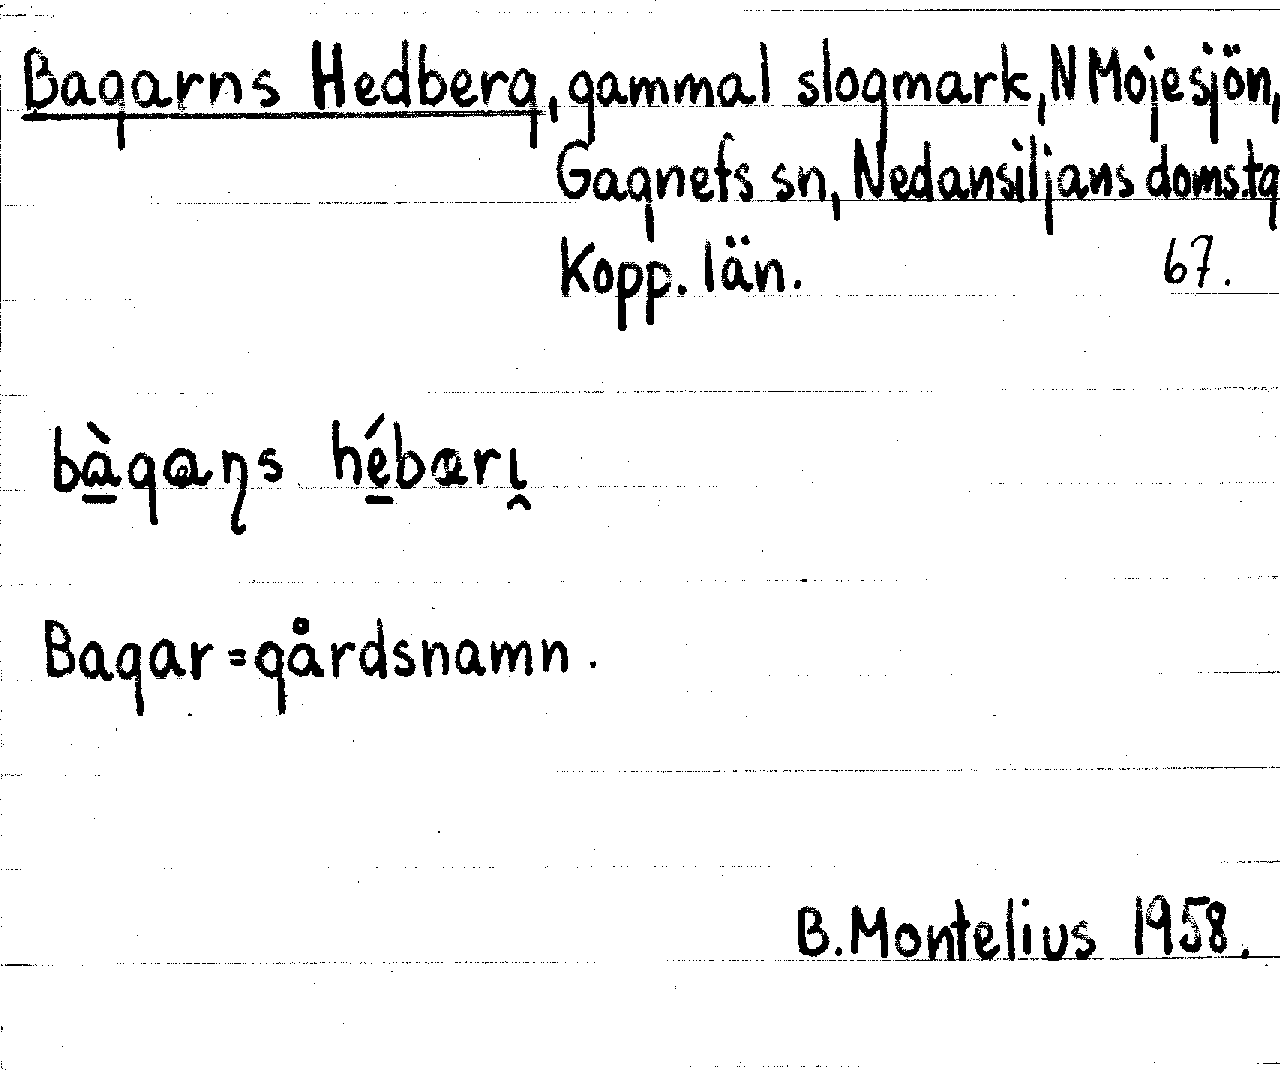 Bagarns Hedberg, gammal slogmark, N Mojesjön,
Gagnefs sn, Nedansiljans doms.tg
Kopp. län. 67.
bà̱gaṇs hé̱bærı̯̂
Bagar = gårdsnamn.
B. Montelius 1958.